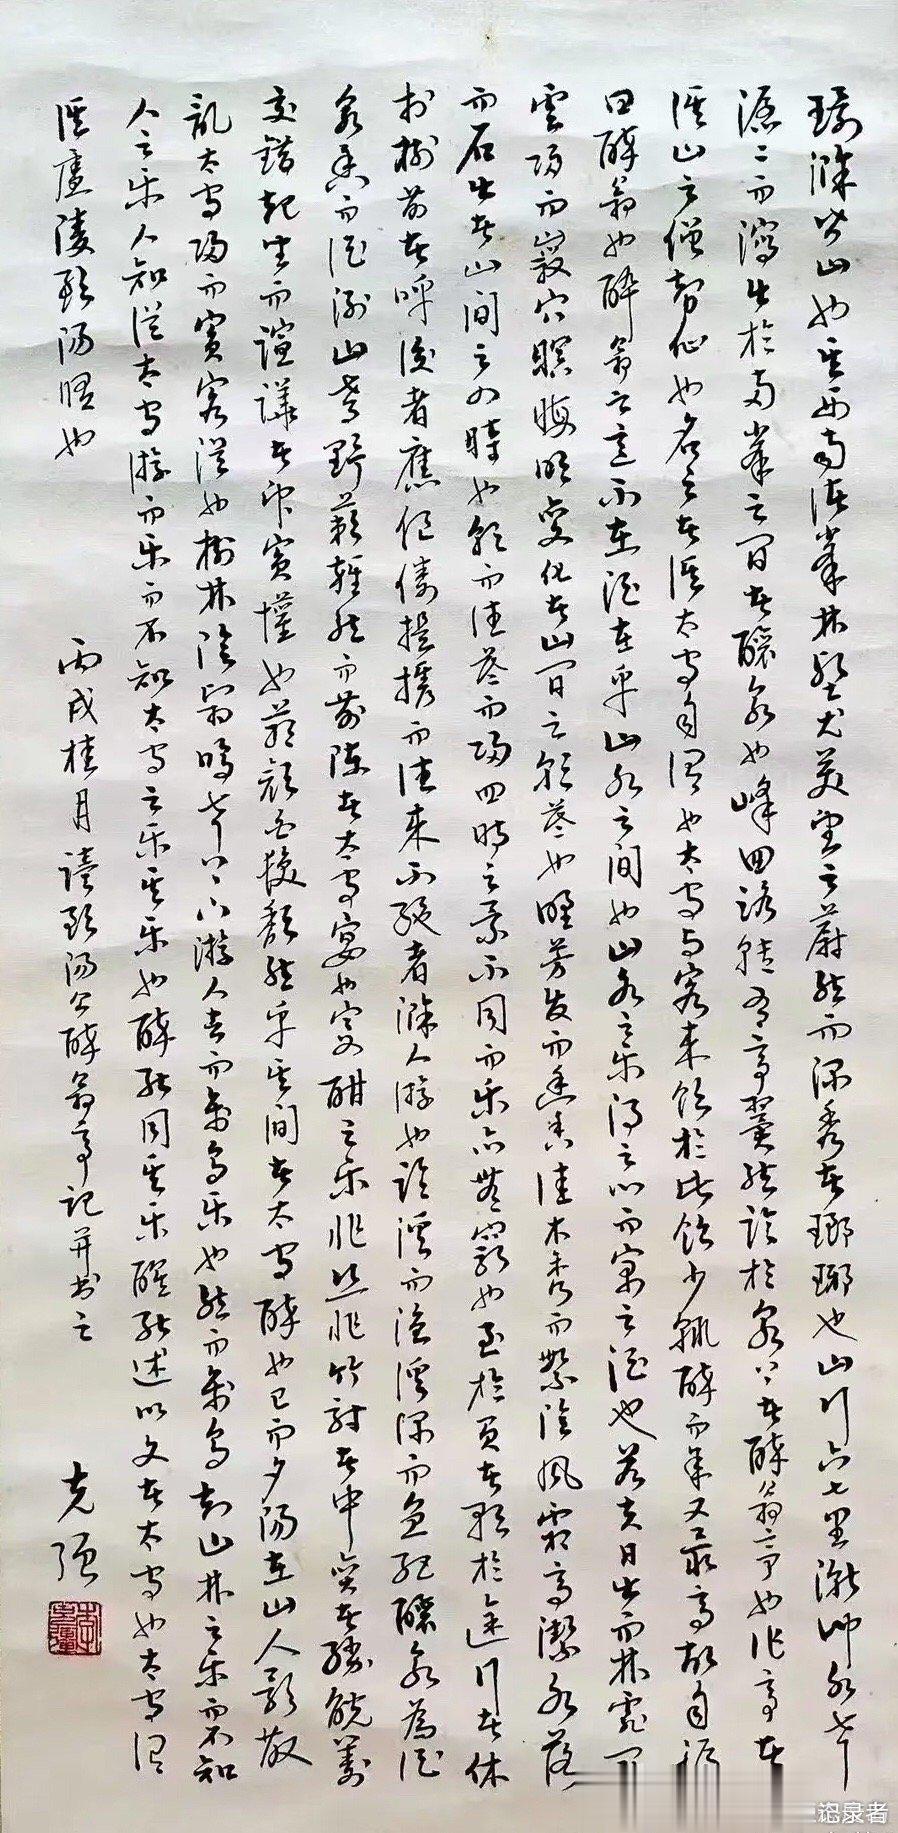 環滁皆山也其西南諸峯林壑尤美望之蔚然而深秀者瑯琊也山行六七里漸聞水声
潺〻而瀉出於兩峯之間者釀泉也峰回路轉有亭翼然臨於泉上者醉翁亭也作亭者
誰山之僧智仙也名之者誰太守自謂也太守与客来飲於此飲少輒醉而年又最高故自號
曰醉翁也醉翁之意不在酒在乎山水之間也山水之乐得之心而寓之酒也若夫日出而林霏開
雲歸而巖穴暝晦明變化者山間之朝暮也野芳发而幽香佳木秀而繁陰風霜高潔水落
而石出者山間之四時也朝而往暮而歸四時之景不同而乐亦無窮也至於負者歌於途行者休
於樹前者呼後者應傴僂提攜而往来不絕者滁人游也臨溪而漁溪深而魚肥釀泉為酒
泉香而酒洌山肴野蔌雜然而前陳者太守宴也宴酣之乐非絲非竹射者中奕者勝觥籌
交錯起坐而諠譁者眾賓懽也蒼顏白髮頹然乎其間者太守醉也已而夕陽在山人影散
亂太守歸而賓客從也樹林陰翳鳴声上下游人去而禽鳥乐也然而禽鳥知山林之乐而不知
人之乐人知從太守游而乐而不知太守之乐其乐也醉能同其乐醒能述以文者太守也太守謂
誰廬陵歐陽脩也 丙戌桂月讀歐陽公醉翁亭記并书之 克强